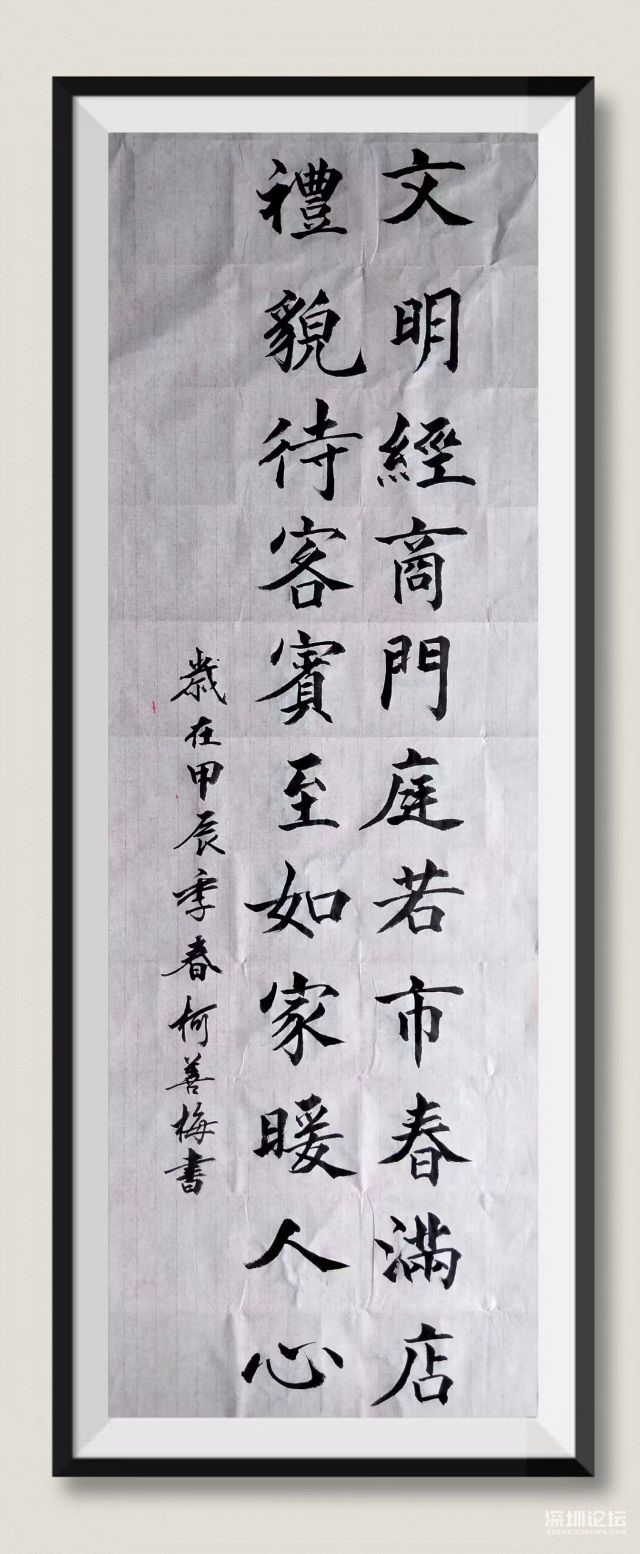 文明經商門庭若市春滿店
禮貌待客賓至如家暖人心
歲在甲辰季春柯善梅書
深圳论坛
SZBBS.SZNEWS.COM